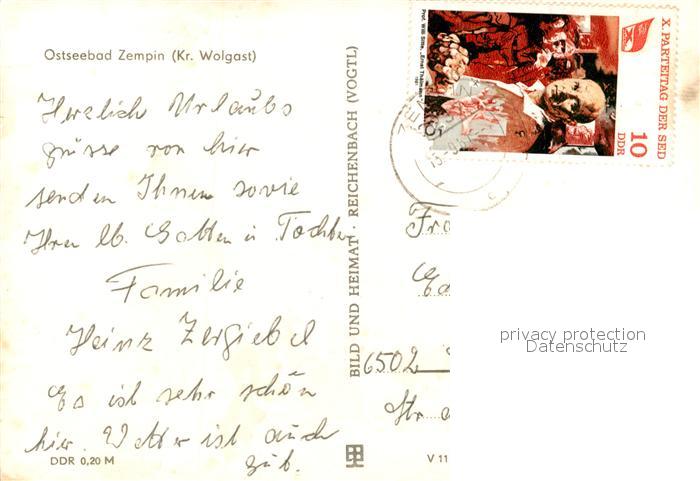 Ostseebad Zempin (Kr. Wolgast)
Herzlich Urlaubs
güsse von hier
senden Ihnen sowie
Ihren lb. Gatten u Tochter
Familie
Heinz Zergiebel
Es ist sehr schön
hier. Wetter ist auch
gut.
DDR 0,20 M
BILD UND HEIMAT · REICHENBACH (VOGTL)
V 11
X. PARTEITAG DER SED
10
DDR
Fra
6502
Str d
privacy protection
Datenschutz